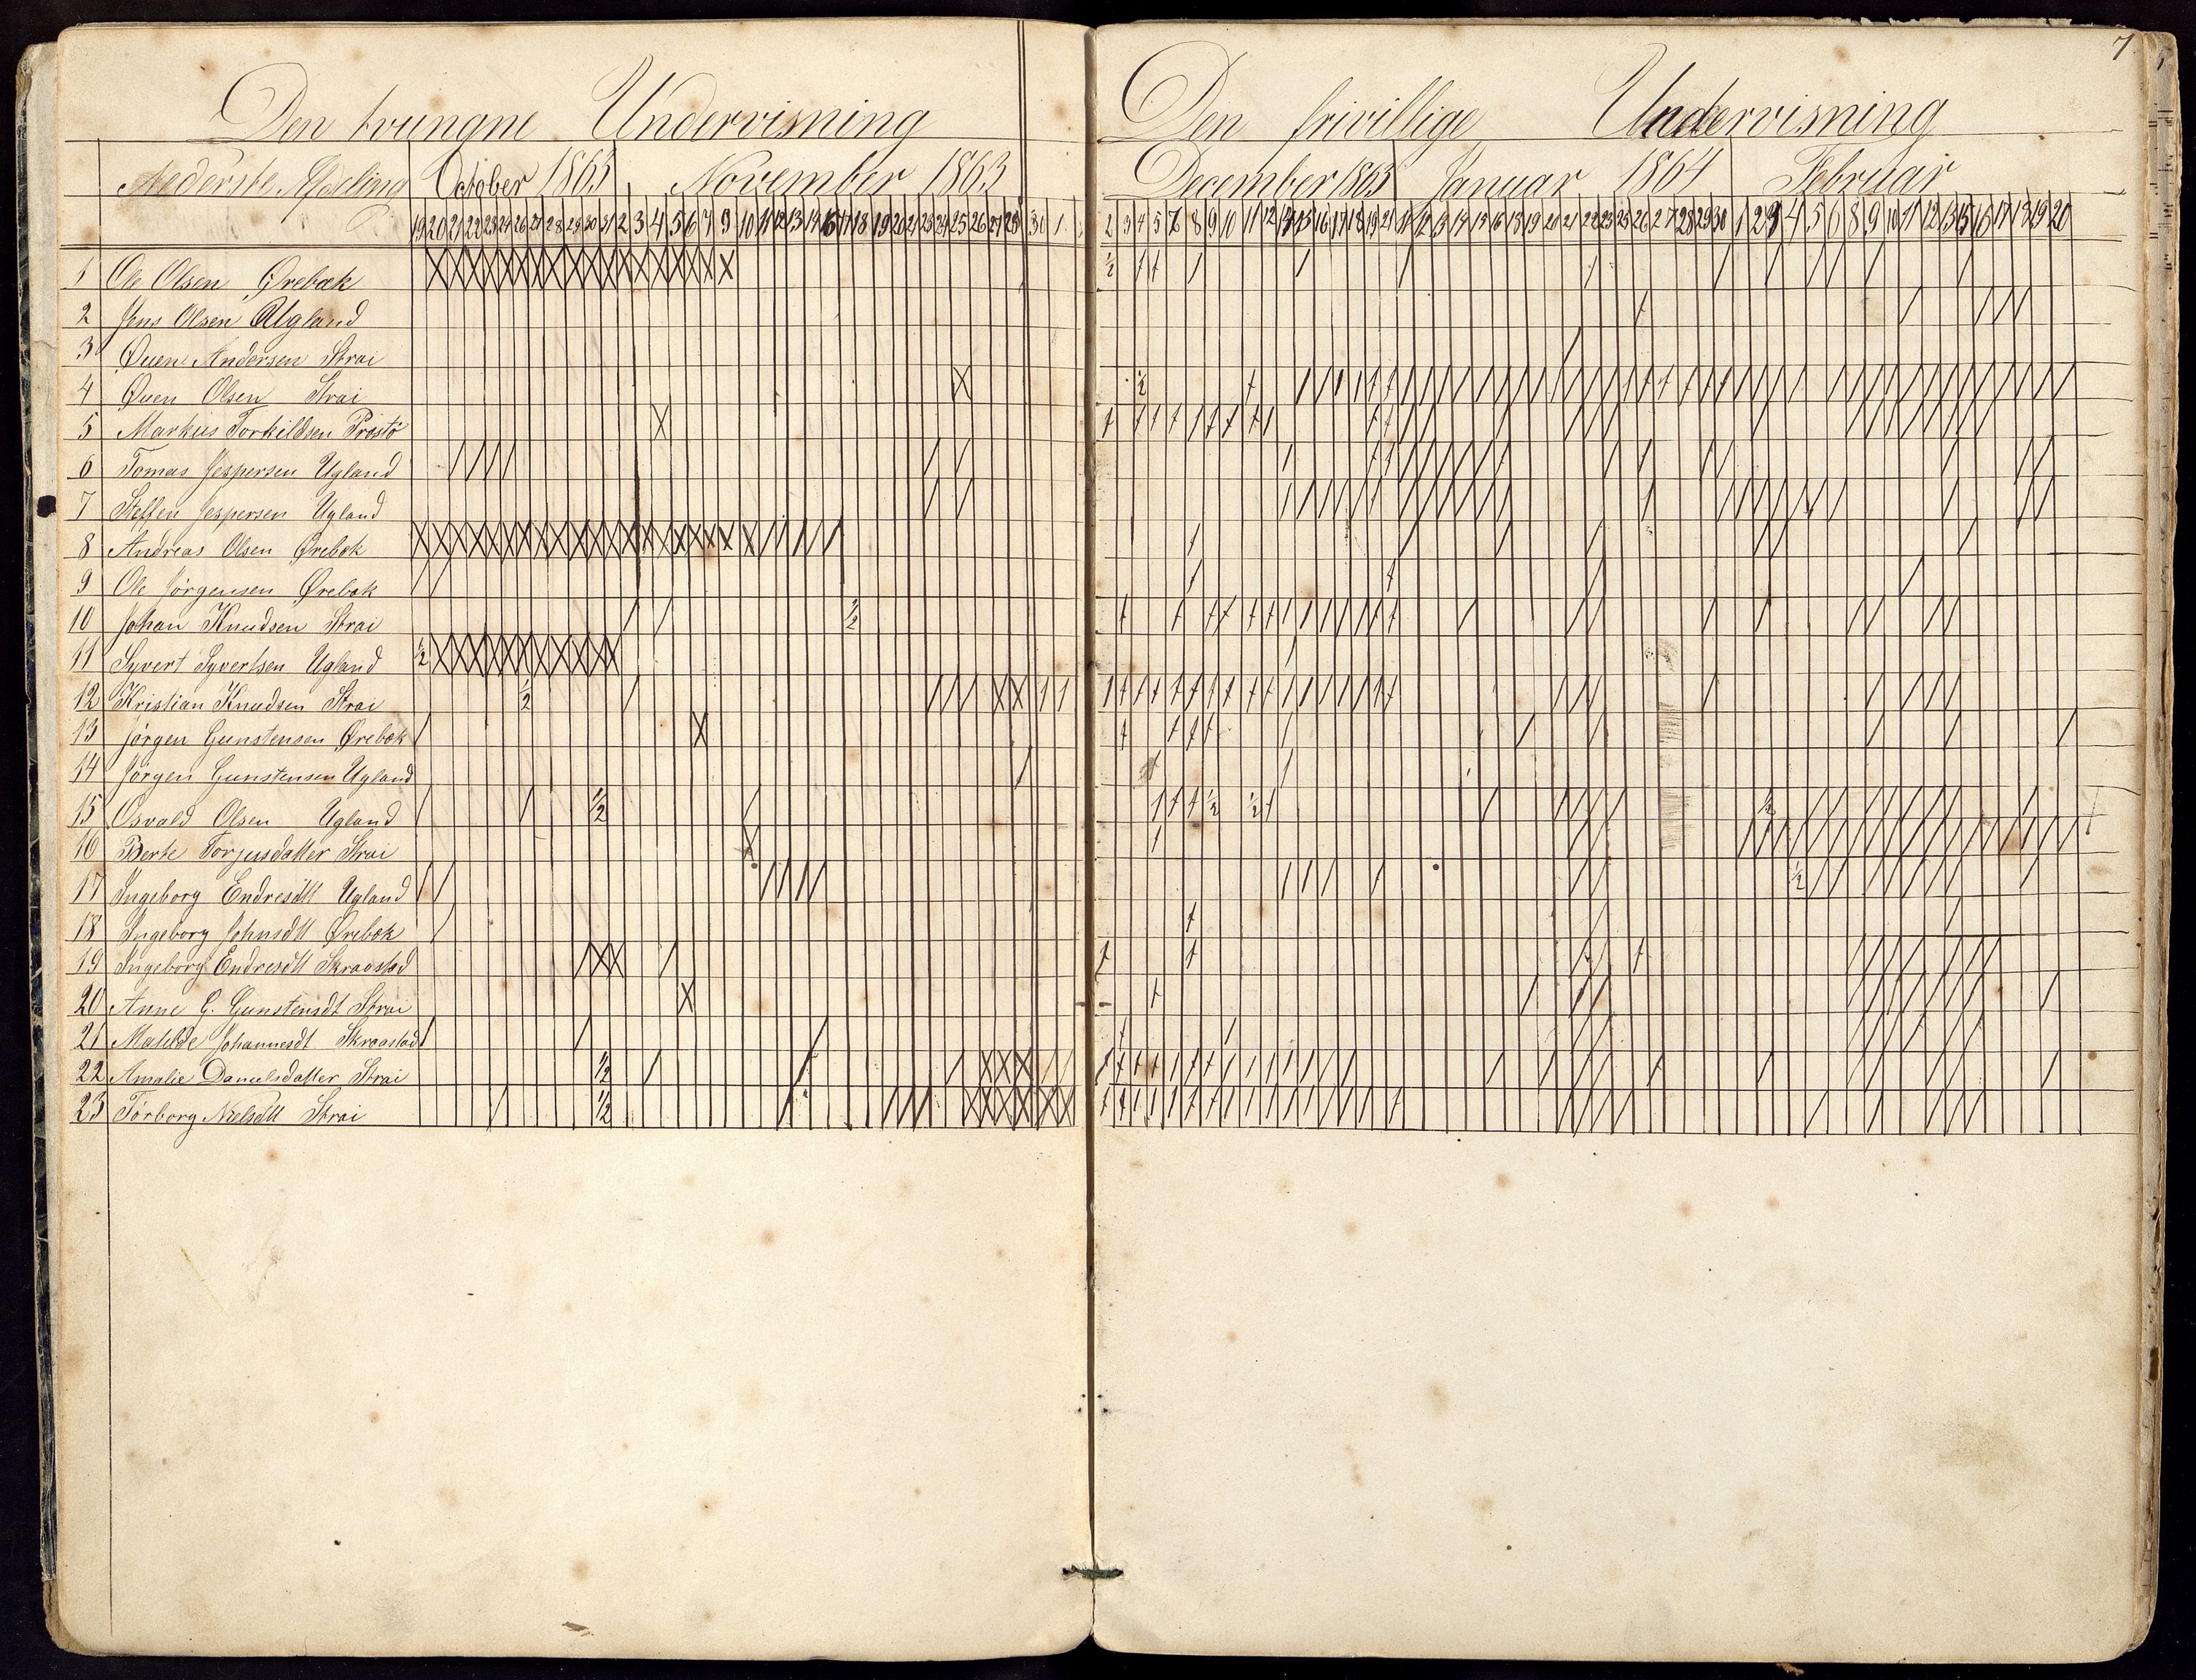 7
Den tvungne Undervisning
Den frivillige Undervisning
Nederste Afdeling October 1863 November 1863
December 1863 Januar 1864 Februar
19 20 21 22 23 24 26 27 28 29 30 31 2 3 4 5 6 7 9 10 11 12 13 14 16 17 18 19 20 21 23 24 25 26 27 28 30 1
2 3 4 5 7 8 9 10 11 12 14 15 16 17 18 19 21 11 12 13 14 15 16 18 19 20 21 22 23 25 26 27 28 29 30 1 2 3 4 5 6 8 9 10 11 12 13 15 16 17 18 19 20
1 Ole Olsen Ørebæk
2 Jens Olsen Ugland
3 Øuen Andersen Strai
4 Øuen Olsen Strai
5 Markus Torkildsen Prøstö
6 Tomas Jespersen Ugland
7 Steffen Jespersen Ugland
8 Andreas Olsen Ørebæk
9 Ole Jörgensen Ørebæk
10 Johan Knudsen Strai ½
11 Syvert Syvertsen Ugland ½
12 Kristian Knudsen Strai ½
13 Jörgen Gunstensen Ørebæk
14 Jørgen Gunstensen Ugland
15 Osvald Olsen Ugland ½ ½ ½ ½
16 Berte Torjusdatter Strai
17 Ingeborg Endresdtt Ugland ½
18 Ingeborg Johnsdtt Ørebæk
19 Ingeborg Endresdtt Skraastad
20 Anne G. Gunstensdt Strai
21 Matilde Johannesdt Skraastad
22 Amalie Danielsdatter Strai ½
23 Torborg Nielsdtt Strai ½